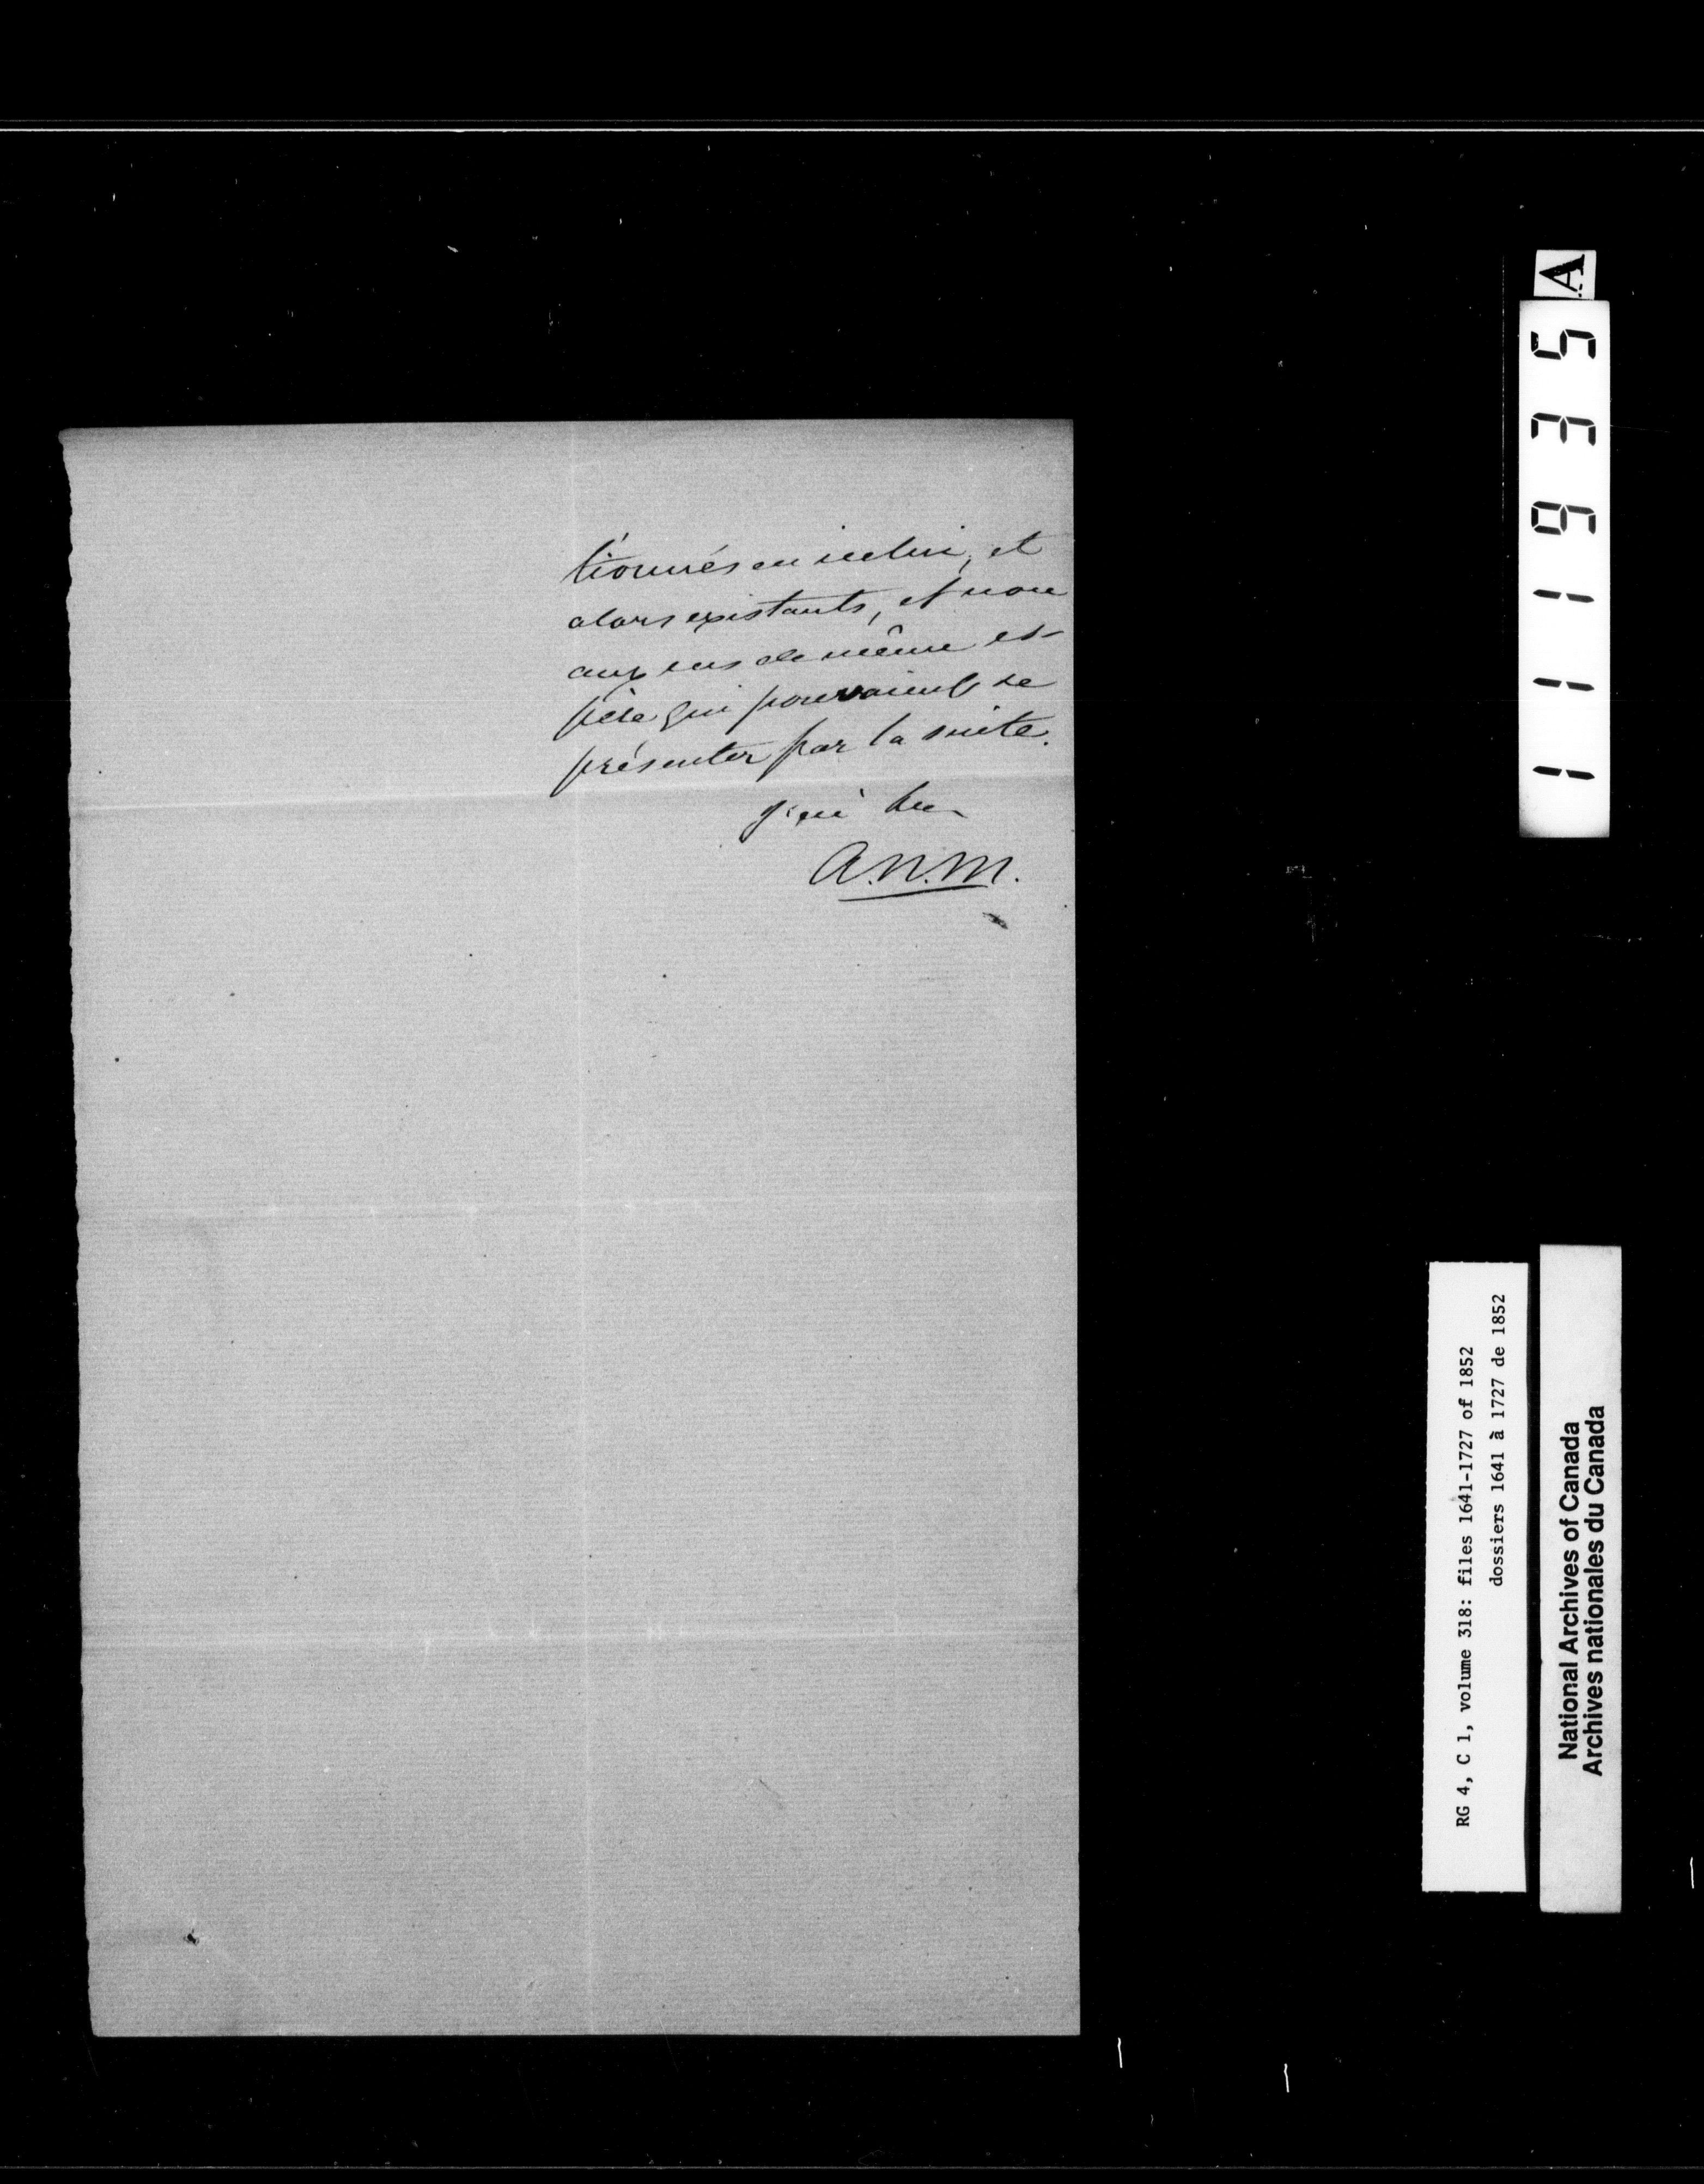 tionnés en icelui, et
alors existants, et non
aux cas de même es-
pèce qui pouvaient se
présenter par la suite.
J'ai &c.
A.N.M.
A
111935
RG 4, C 1, volume 318: files 1641-1727 of 1852
dossiers 1641 à 1727 de 1852
National Archives of Canada
Archives nationales du Canada